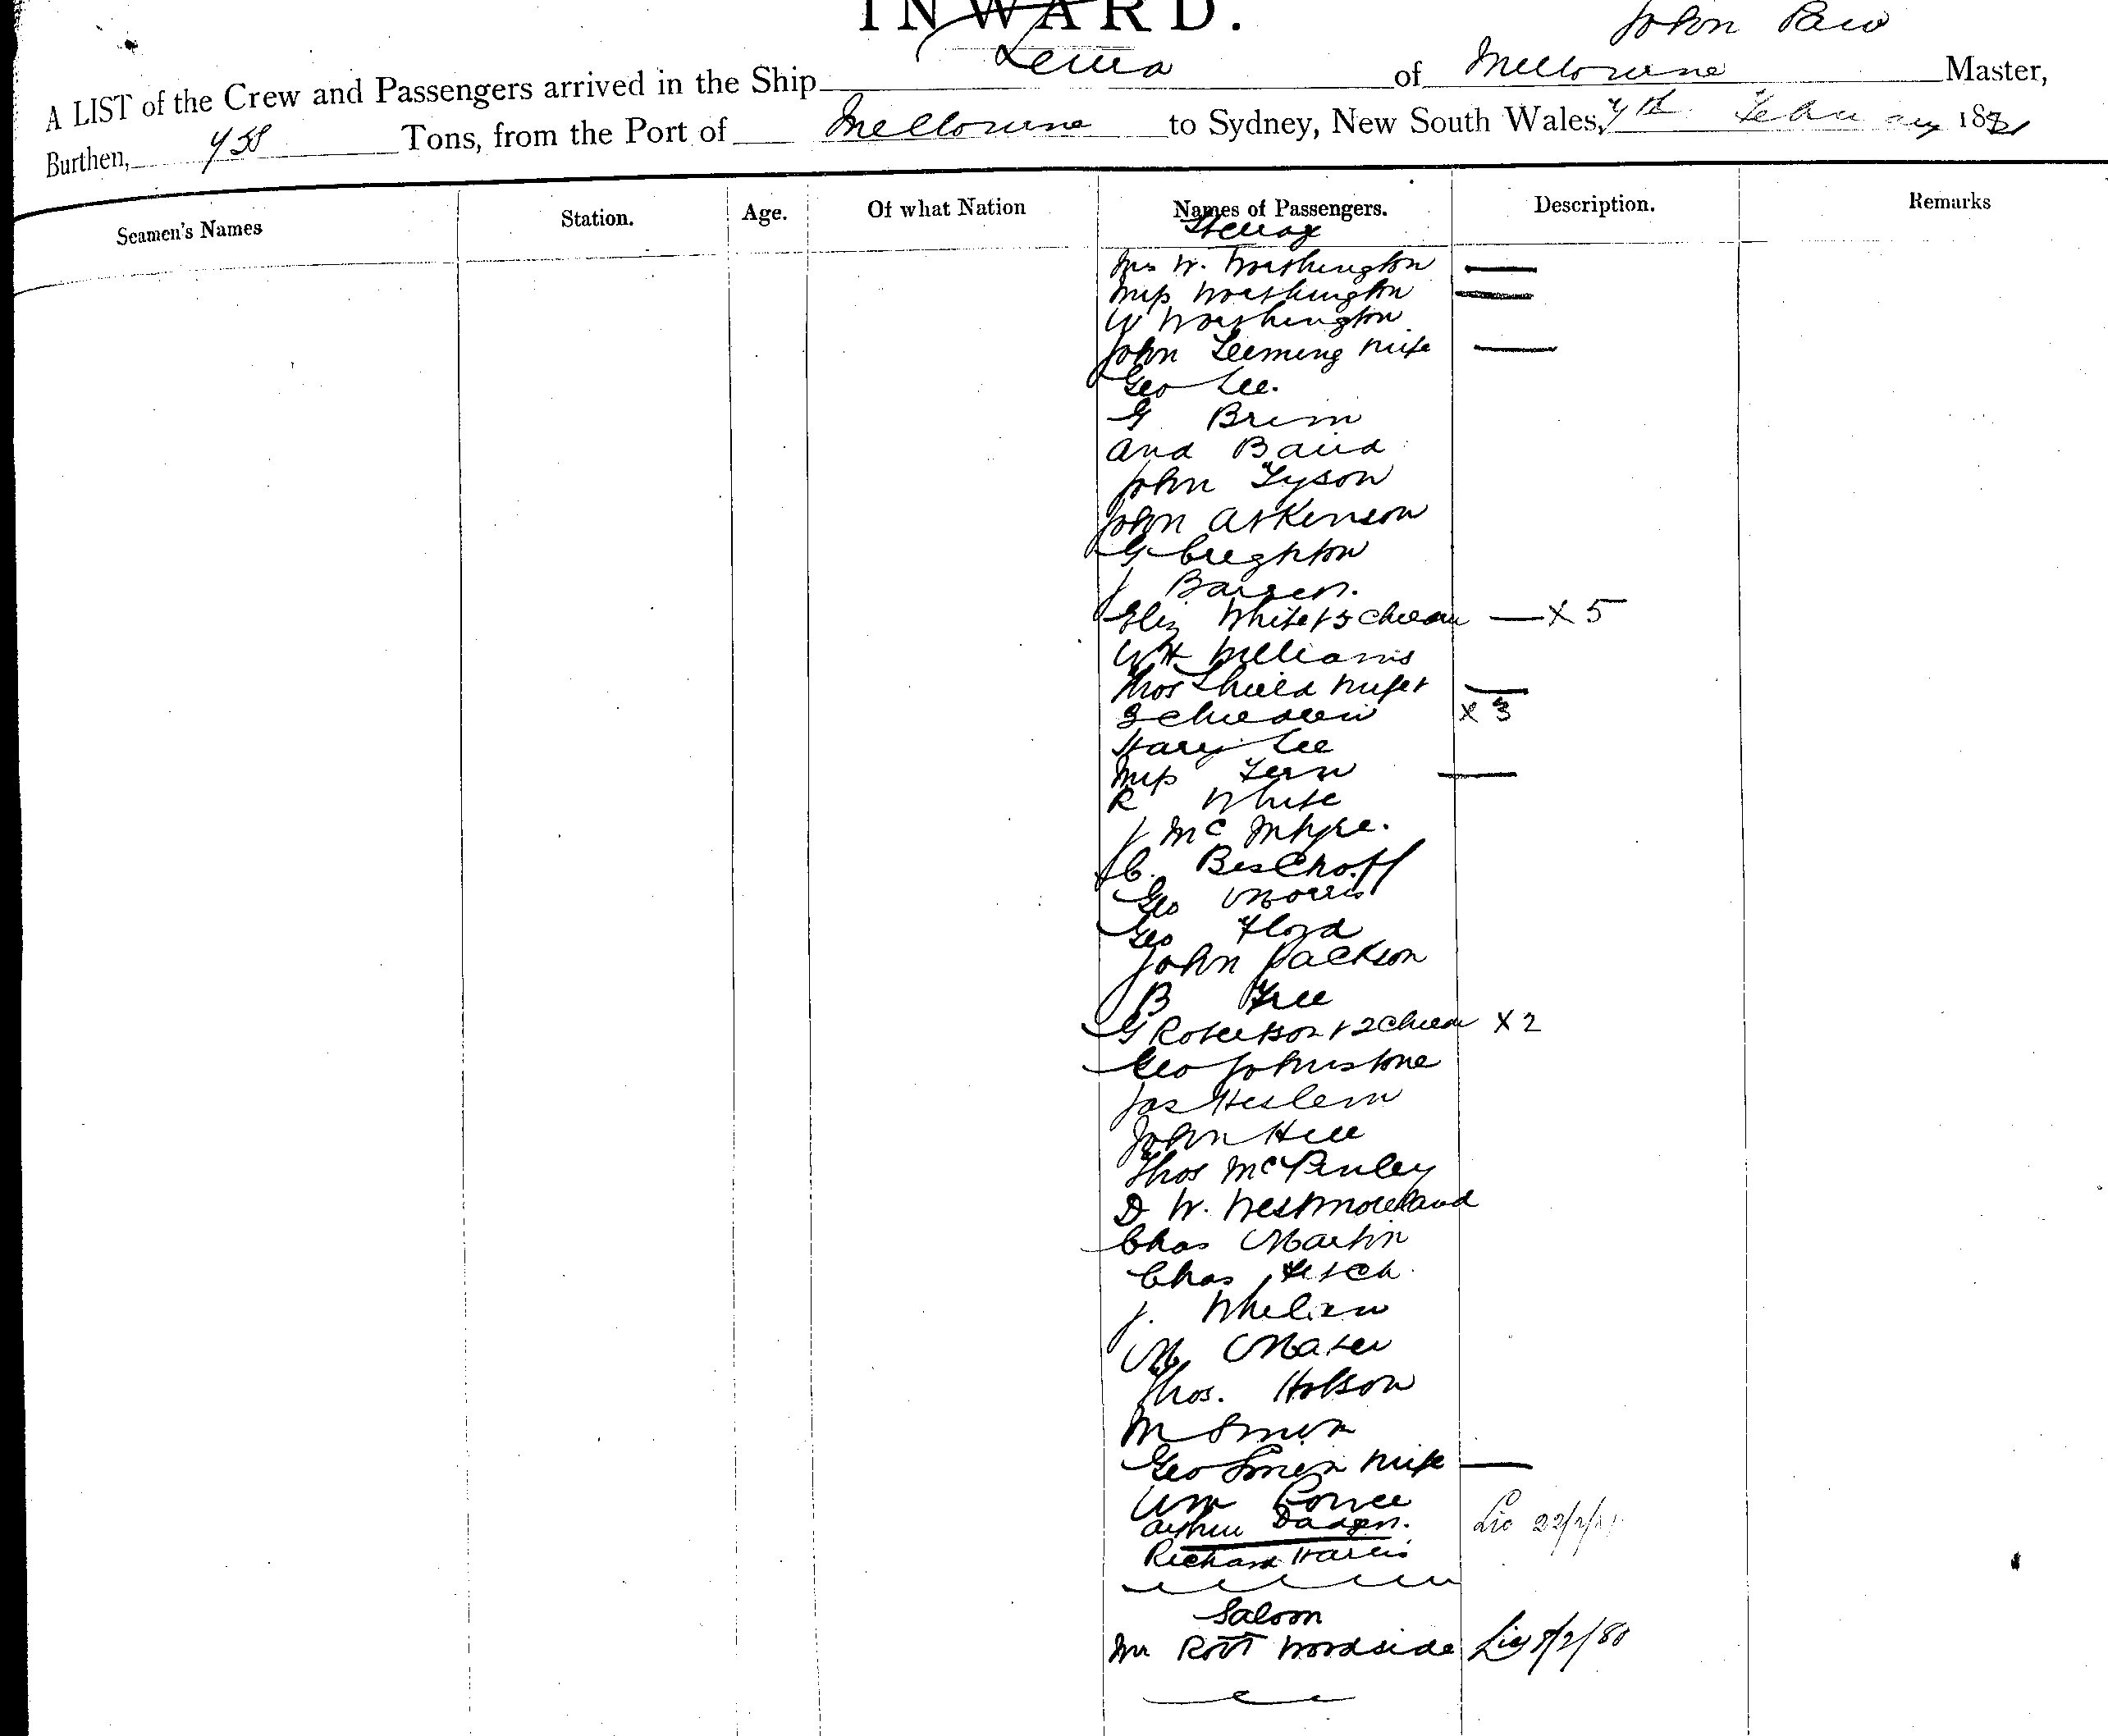 INWARD.
John
A LIST of the Crew and Passengers arrived in the Ship Leura of Melbourne Master,
Burthen, Tons, from the Port of Melbourne to Sydney, New South Wales, 7th February 188
Seamen's Names Station. Age. Of what Nation Names of Passengers. Description. Remarks
Steerage
Mrs W. Worthington
Miss Worthington
W Worthington
John Leeming wife
Geo Lee.
G Brim
And Baird
John Tyson
John Atkinson
G Creghton
J
Eliz White + 5 children X 5
WH Williams
Thos Shield wife +
3 children X 3
Harry Lee
Miss Fern
R White
J McIntyre.
C. Bischoff
Geo Morris
Geo Floyd
John Jackson
B Free
G Robertson + 2 children X 2
Geo Johnstone
Jas Heslem
John Hill
Thos
D W. Westmoreland
Chas Martin
Chas Fitch
J. Whelan
M Maher
Thos. Hobson
M Smith
Geo Smith wife
Wm
Arthur
Richard Harris
Saloon
Mr Robt Woodside